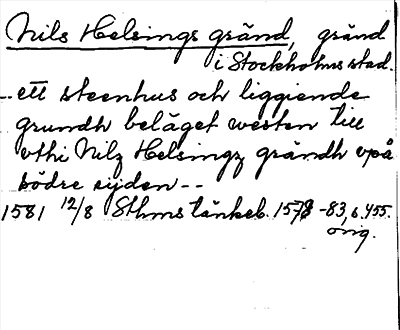 Nils Helsings gränd, gränd
i Stockholms stad.
-- ett steenhus och liggiende
grundh beläget westen till
vthi Nilz Helsingz grändh vpå
södre sijden --
1581 12/8 Sthms tänkeb. 1578-83, s. 455.
orig.